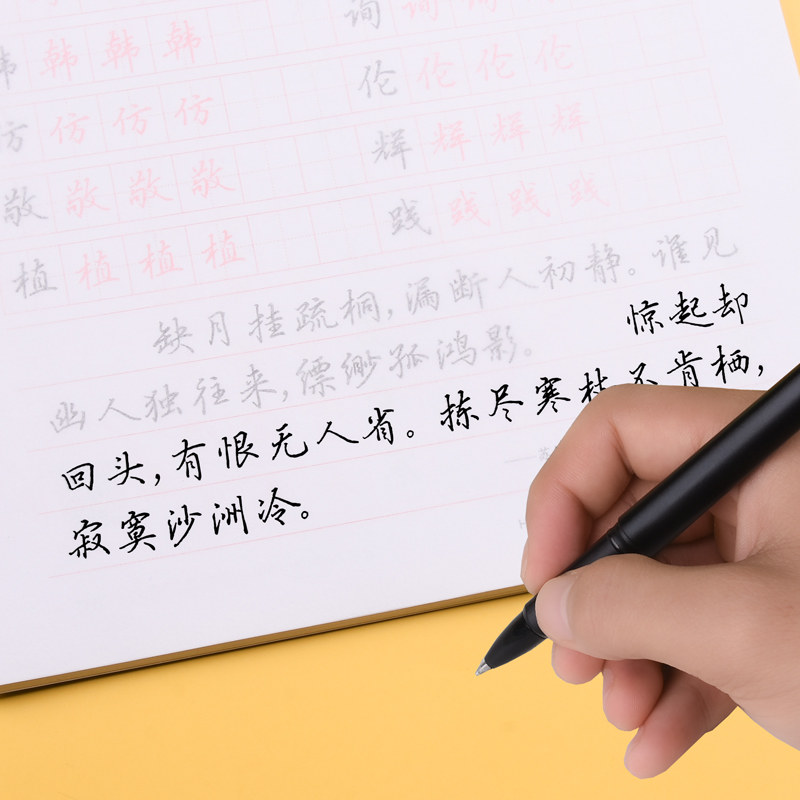 询 询 询 询
韩 韩 韩 韩
伦 伦 伦 伦
仿 仿 仿 仿
辉 辉 辉 辉
敬 敬 敬 敬
践 践 践 践
植 植 植 植
缺月挂疏桐，漏断人初静。谁见
幽人独往来，缥缈孤鸿影。 惊起却
回头，有恨无人省。拣尽寒枝不肯栖，
寂寞沙洲冷。